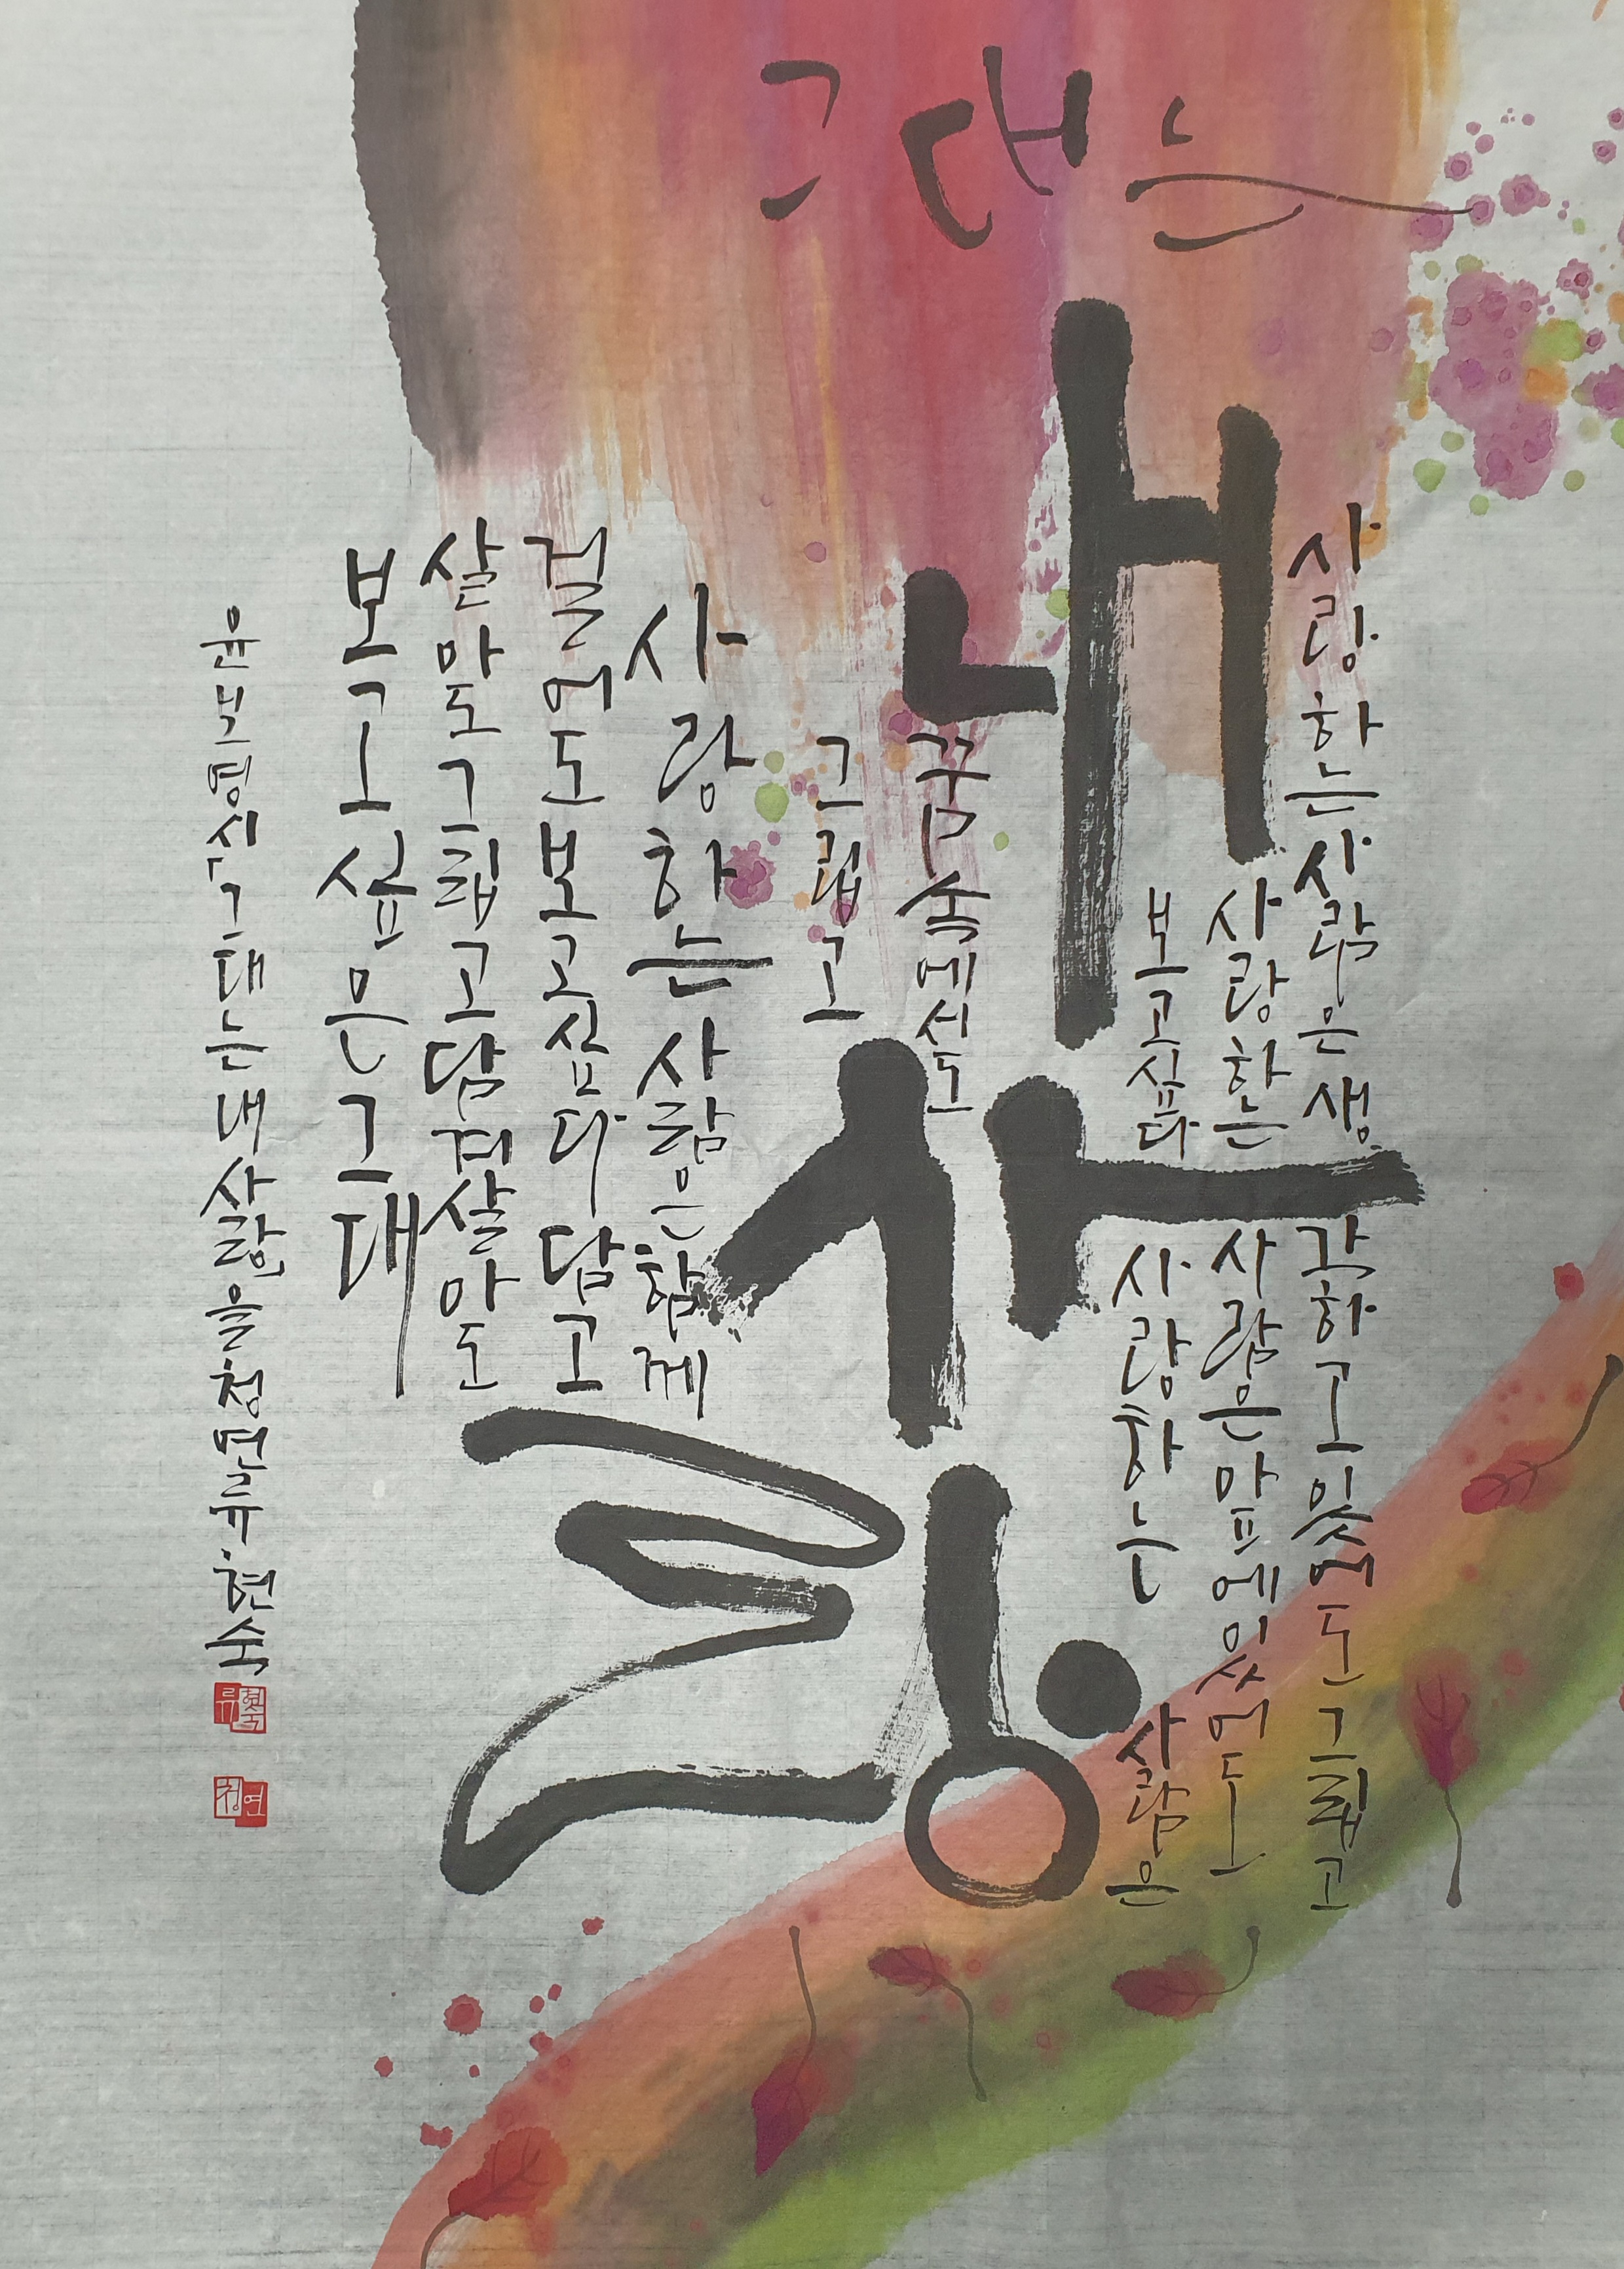 그대는
내
사
랑
사랑하는 사람은 생각하고 있어도 그립고
사랑하는 사람은 앞에 있어도
보고싶다 사랑하는 사람은
꿈속에서도
그립고
사랑하는 사람은 함께
걸어도 보고싶다 담고
살아도 그립고 담겨 살아도
보고 싶은 그대
윤보영시「그대는 내 사랑을 청연 류.현숙
류현숙
청연